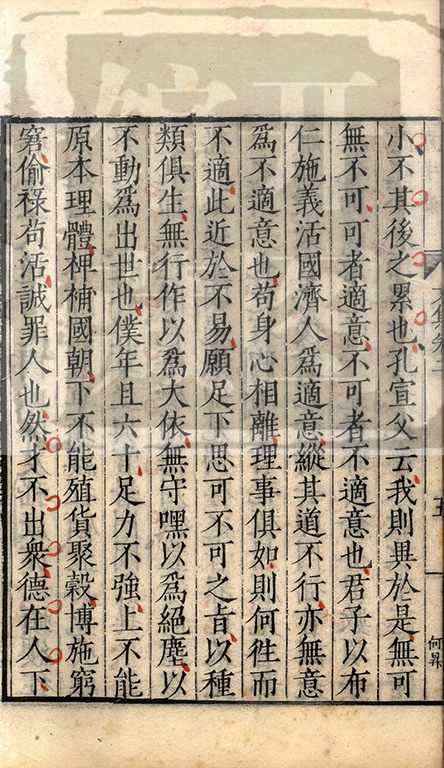 小不其後之累也孔宣父云我則異於是無可
無不可可者適意不可者不適意也君子以布
仁施義活國濟人爲適意縱其道不行亦無意
爲不適意也苟身心相離理事俱如則何徃而
不適此近於不易願足下思可不可之㫖以種
類俱生無行作以爲大依無守嘿以爲絕塵以
不動爲出世也僕年且六十足力不強上不能
原本理體裨補國朝下不能殖貨聚穀博施窮
窘偷祿苟活誠罪人也然才不出衆德在人下
五
何昇